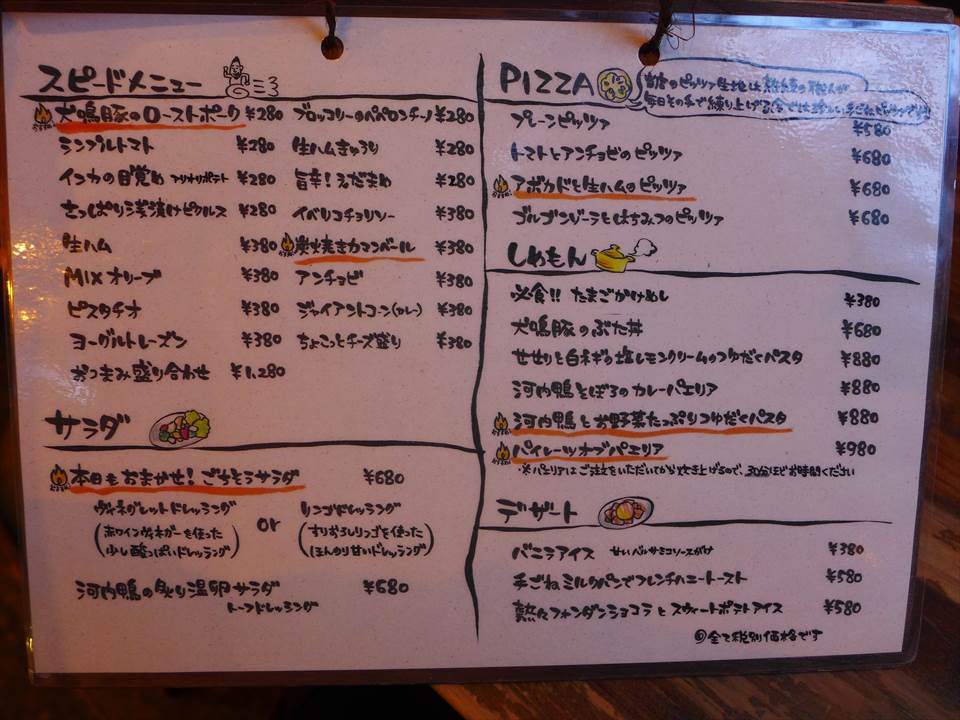 スピードメニュー
犬鳴豚のローストポーク ¥280
シンプルトマト ¥280
インカの目覚め アリオリポテト ¥280
さっぱり浅漬けピクルス ¥280
生ハム ¥380
MIX オリーブ ¥380
ピスタチオ ¥380
ヨーグルトレーズン ¥380
おつまみ盛り合わせ ¥1,280
ブロッコリーのペペロンチーノ ¥280
生ハムきゅうり ¥280
旨辛!えだまめ ¥280
イベリコチョリソー ¥380
炭焼きカマンベール ¥380
アンチョビ ¥380
ジャイアントコーン(カレー) ¥380
ちょこっとチーズ盛り ¥380
サラダ
本日もおまかせ!ごちそうサラダ ¥680
ヴィネグレットドレッシング
(赤ワインビネガーを使った
少し酸っぱいドレッシング)
or
リンゴドレッシング
(すりおろしリンゴを使った
ほんのり甘いドレッシング)
河内鴨の炙り温卵サラダ ¥680
トーフドレッシング
PIZZA
当店のピッツァ生地は熟練の職人が
毎日その手で練り上げる
プレーンピッツァ ¥580
トマトとアンチョビのピッツァ ¥680
アボカドと生ハムのピッツァ ¥680
ゴルゴンゾーラとはちみつのピッツァ ¥680
しめもん
必食!! たまごかけめし ¥380
犬鳴豚のぶた丼 ¥680
せせりと白ネギの塩レモンクリームのつゆだくパスタ ¥880
河内鴨そぼろのカレーパエリア ¥880
河内鴨とお野菜たっぷりつゆだくパスタ ¥880
パイレーツオブパエリア ¥980
・※パエリアはご注文をいただいてから炊き上げるので、30分ほどお時間ください
デザート
バニラアイス せいバルサミコソースがけ ¥380
手ごねミルクパンでフレンチハニートースト ¥580
熱々フォンダンショコラとスウィートポテトアイス ¥580
全て税別価格です